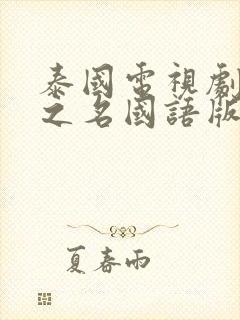 泰國電視劇
之名國語版
夏春雨